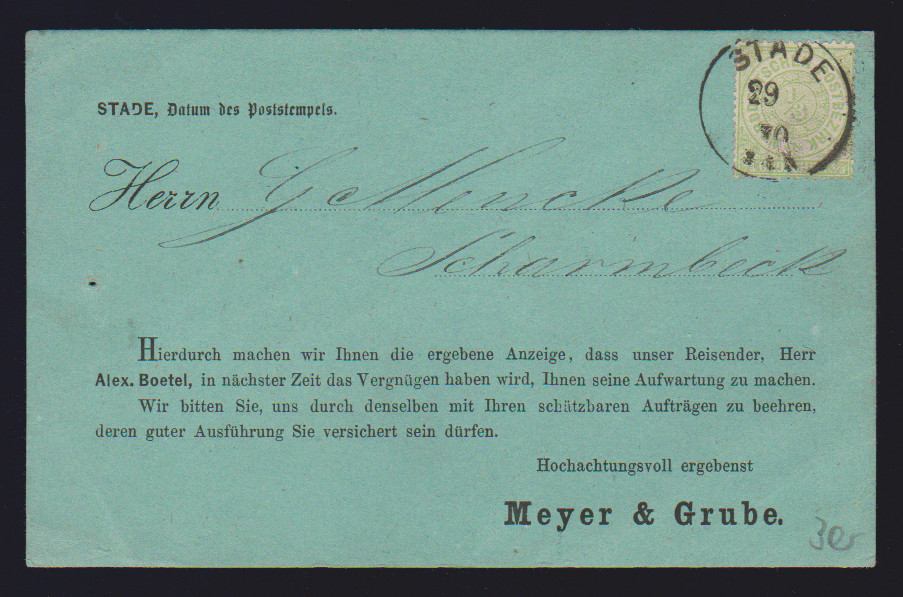 STADE
29
70
STADE, Datum des Poststempels.
Herrn G Mencke
Scharmbeck
Hierdurch machen wir Ihnen die ergebene Anzeige, dass unser Reisender, Herr
Alex. Boetel, in nächster Zeit das Vergnügen haben wird, Ihnen seine Aufwartung zu machen.
Wir bitten Sie, uns durch denselben mit Ihren schätzbaren Aufträgen zu beehren,
deren guter Ausführung Sie versichert sein dürfen.
Hochachtungsvoll ergebenst
Meyer & Grube.